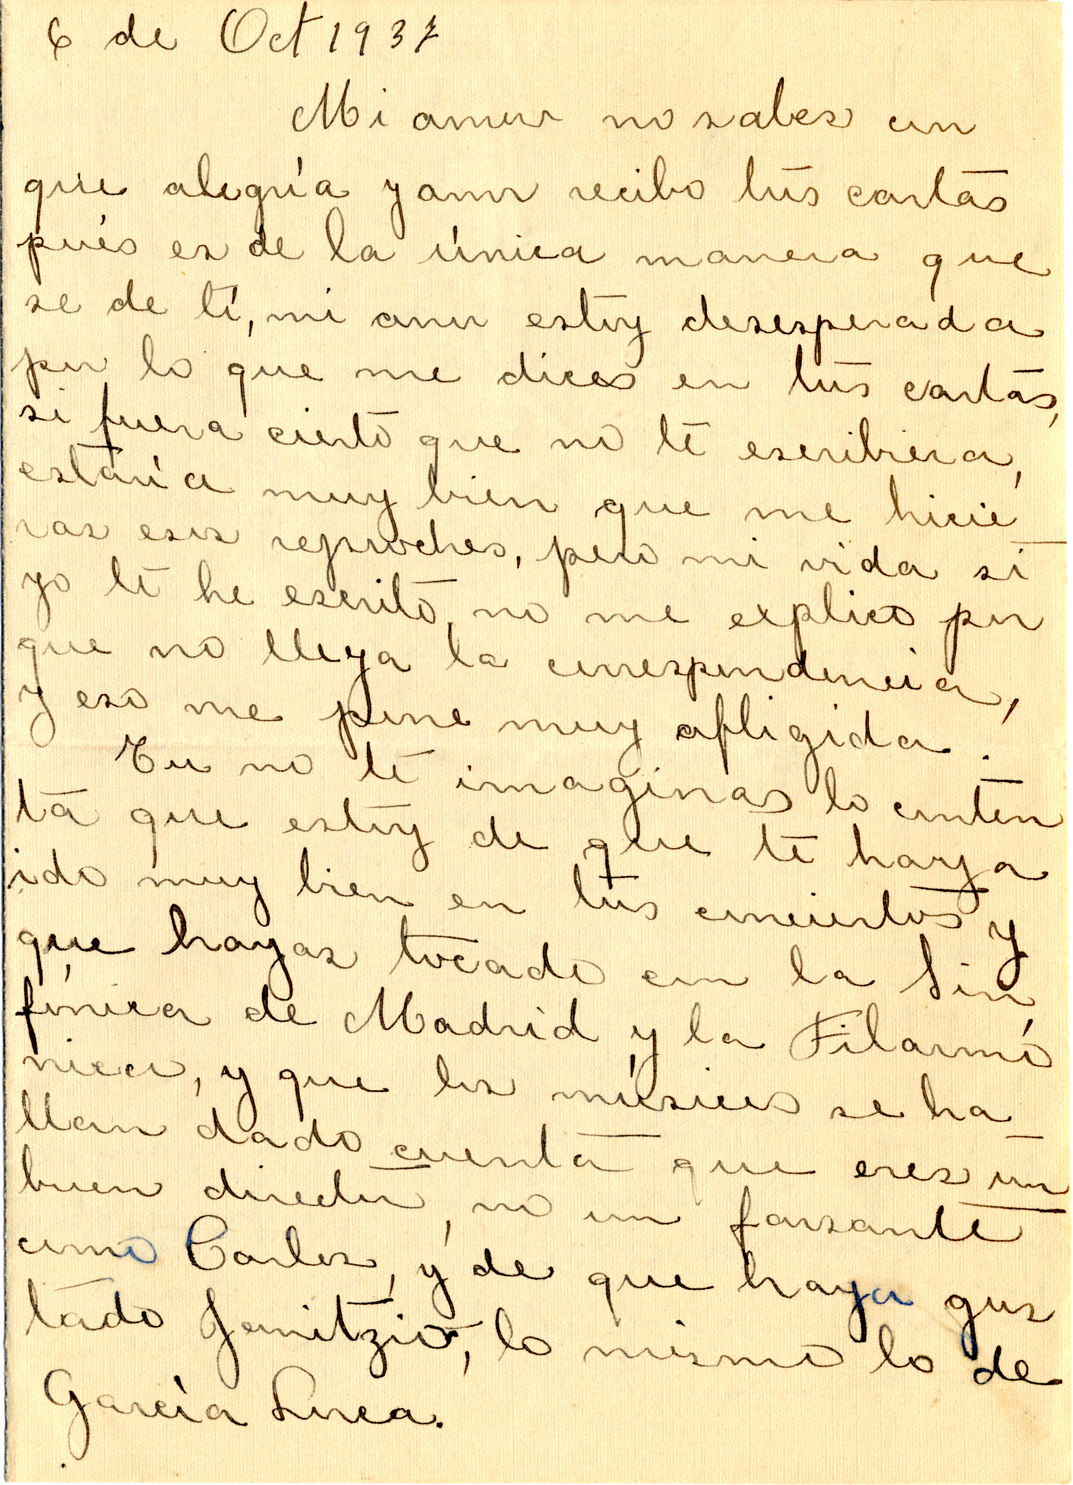 6 de Oct 1937
Mi amor no sabes con
que alegría y amor recibo tus cartas
pués es de la única manera que
se de tí, mi amor estoy desesperada
por lo que me dices en tus cartas,
si fuera cierto que no te escribiera,
estaría muy bien que me hicie
ras esos reproches, pero mi vida si
yo te he escrito, no me explico por
que no llega la correspondencia,
y eso me pone muy afligida.
Tu no te imaginas lo conten
ta que estoy de que te haya
ido muy bien en tus conciertos y
que hayas tocado con la Sin
fónica de Madrid y la Filarmó
nica, y que los músicos se ha
llan dado cuenta que eres un
buen director, no un farsante
como Carlos, y de que haya gus
tado Janitzio, lo mismo lo de
García Lorca.